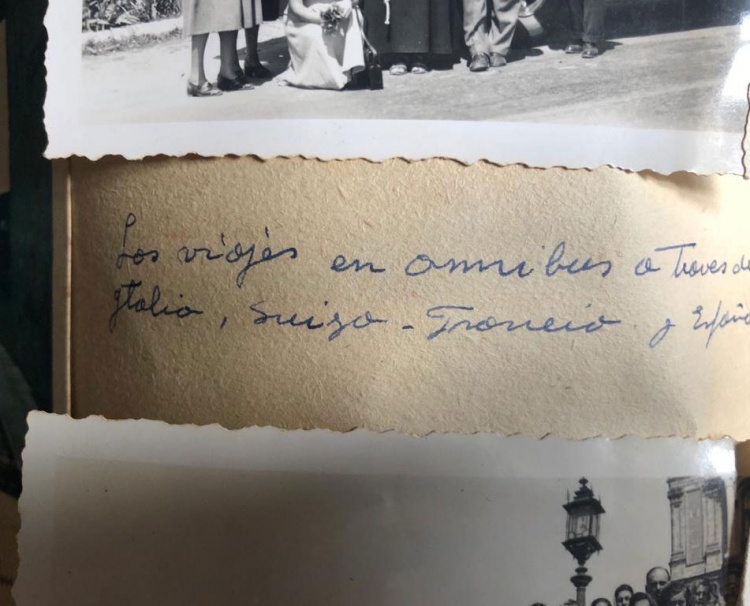 Los viajes en omnibus a Traves de
Italia, Suiza - Francia y España